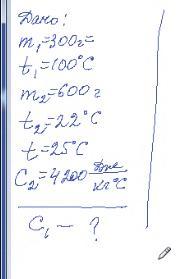 Дано:
m₁=300г=
t₁=100°C
m₂=600г
t₂=22°C
t=25°C
C₂=4200 Дж/кг°C
C₁ – ?